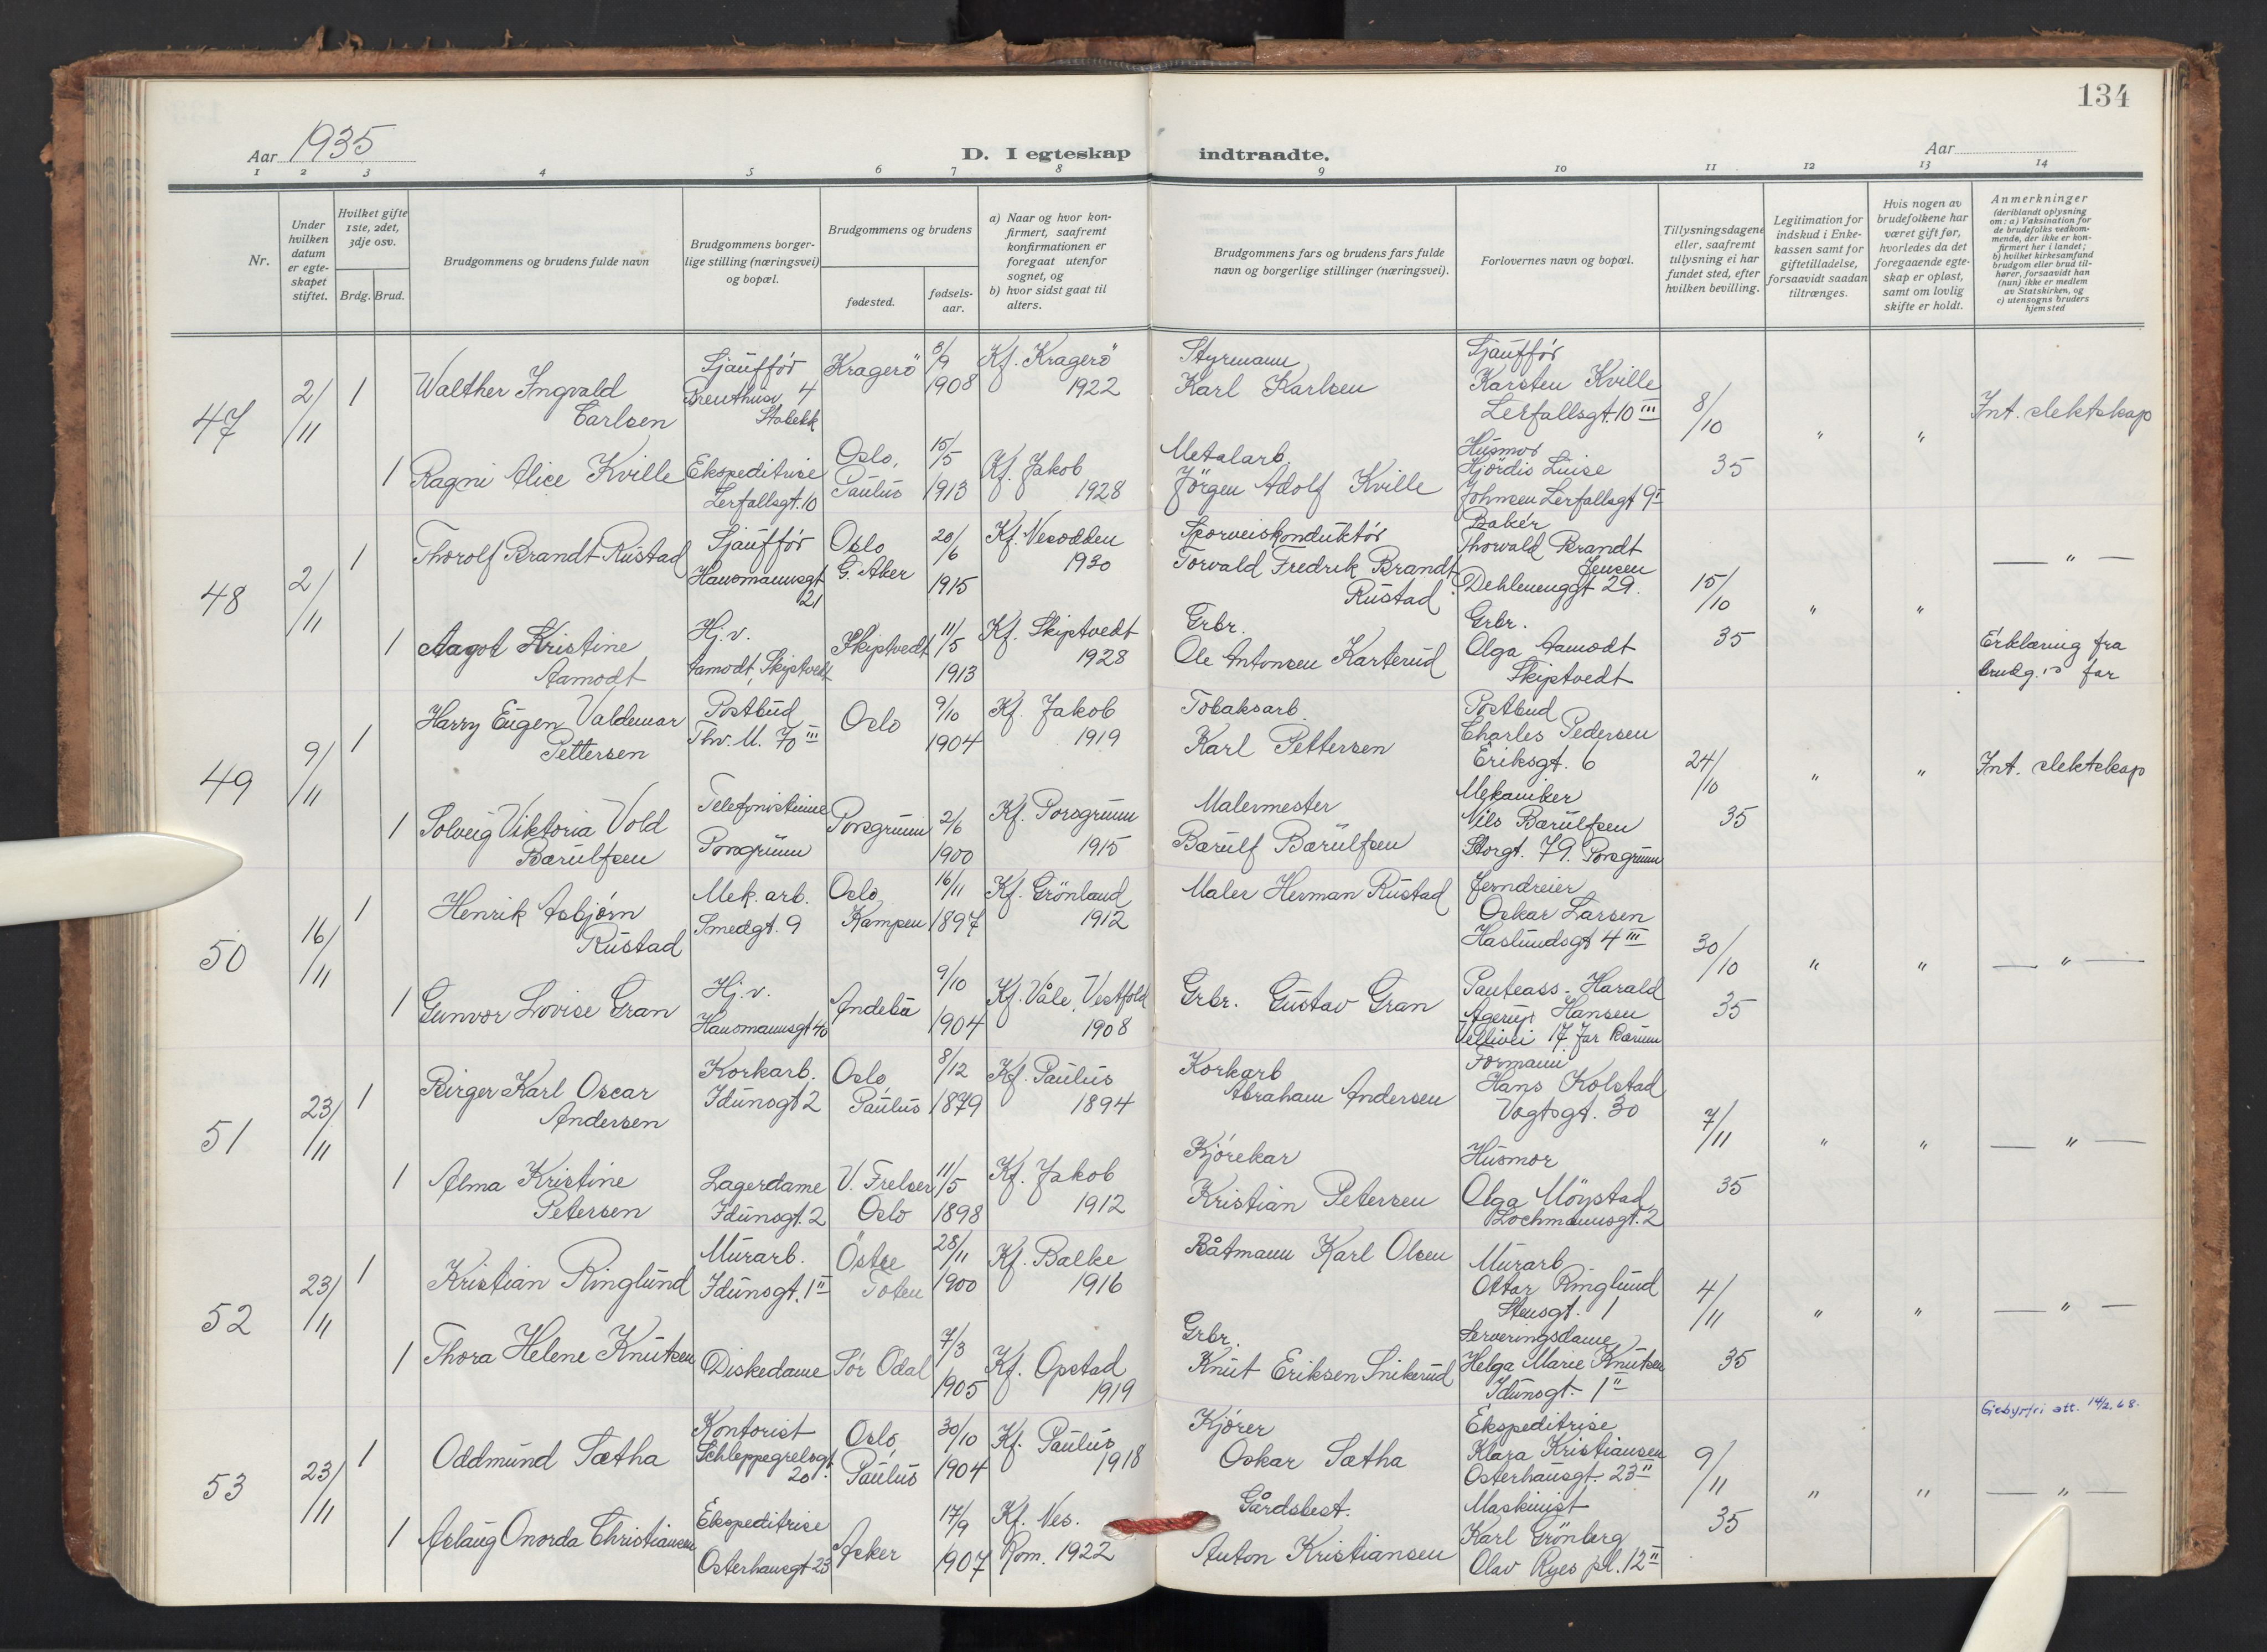 134
Aar 1935
D. I egteskap indtraadte.
Aar
1 2 3 4 5 6 7 8 9 10 11 12 13 14
Nr.
Under hvilken datum er egteskapet stiftet.
Hvilket gifte 1ste, 2det, 3dje osv.
Brdg. Brud.
Brudgommens og brudens fulde navn
Brudgommens borgerlige stilling (næringsvei) og bopæl.
Brudgommens og brudens
fødested.
fødselsaar.
a) Naar og hvor konfirmert, saafremt konfirmationen er foregaat utenfor sognet, og
b) hvor sidst gaat til alters.
Brudgommens fars og brudens fars fulde navn og borgerlige stillinger (næringsvei).
Forlovernes navn og bopæl.
Tillysningsdagene eller, saafremt tillysning ei har fundet sted, efter hvilken bevilling.
Legitimation for indskud i Enkekassen samt for giftetilladelse, forsaavidt saadan tiltrænges.
Hvis nogen av brudefolkene har været gift før, hvorledes da det foregaaende egteskap er opløst, samt om lovlig skifte er holdt.
Anmerkninger
(deriblandt oplysning om: a) Vaksination for de brudefolks vedkommende, der ikke er konfirmert her i landet;
b) hvilket kirkesamfund brudgom eller brud tilhører, forsaavidt han (hun) ikke er medlem av Statskirken, og
c) utensogns bruders hjemsted
47
2/11
1
Walther Ingvald
Carlsen
Sjaufför
4
Stabekk
Kragerö
/9
1908
Kf. Kragerö
1922
Styrmann
Karl Karlsen
Sjaufför
Karsten Kville
Lerfallsgt. 10 III
8/10
35
"
"
Int. slektskap
1
Ragni Alice Kville
Ekspeditrise
Lerfallsgt. 10
Oslo,
Paulus
15/5
1913
Kf. Jakob
1928
Metalarb.
Jörgen Adolf Kville
Husmor
Hjördis Luise
Johnsen Lerfallsgt 9 II
48
2/11
1
Thorolf Brandt-Rustad
Sjaufför
Hausmannsgt
21
Oslo
G. Aker
20/6
1915
Kf. Nesodden
1930
Sporveiskonduktör
Torvald Fredrik Brandt
Rustad
Baker
Thorvald Brandt
Jensen
Dehlenenggt 29.
15/10
35
"
"
— " —
1
Aagot Kristine
Aamodt
Hj. v.
Aamodt, Skiptvedt
Skiptvedt
11/5
1913
Kf. Skiptvedt
1928
Grbr.
Ole Antonsen Karterud
Grbr.
Olga Aamodt
Skiptvedt
Erklæring fra
brudg.'s far
49
9/11
1
Harry Eugen Valdemar
Pettersen
Postbud
Thv. M. 70 III
Oslo
9/10
1904
Kf. Jakob
1919
Tobaksarb.
Karl Pettersen
Postbud
Charles Pedersen
Eriksgt. 6
24/10
35
"
"
Int. slektskap
1
Solveig Viktoria Vold
Barulfsen
Telefonistinne
Porsgrunn
Porsgrunn
2/6
1900
Kf. Porsgrunn
1915
Malermester
Barulf Barulfsen
Mekaniker
Nils Barulfsen
Storgt. 79. Porsgrunn
50
16/11
1
Henrik Asbjørn
Rustad
Mek. arb.
Smedgt. 9
Oslo,
Kampen
16/11
1897
Kf. Grönland
1912
Maler Herman Rustad
Jerndreier
Oskar Larsen
Haslundsgt 4 III
30/10
35
"
"
— " —
1
Gunvor Lovise Gran
Hj. v.
Hausmannsgt 40
Andebu
9/10
1904
Kf. Våle, Vestfold
1908
Grbr. Gustav Gran
Harald
Agerup Hansen
17 Jar Bærum
51
23/11
1
Birger Karl Oscar
Andersen
Korkarb.
Idunsgt 2
Oslo,
Paulus
8/12
1879
Kf. Paulus
1894
Korkarb
Abraham Andersen
Formann
Hans Kolstad
Vogtsgt. 30
7/11
35
"
"
— " —
1
Alma Kristine
Petersen
Lagerdame
Idunsgt. 2
V. Frelser
Oslo
11/5
1898
Kf. Jakob
1912
Kjörekar
Kristian Petersen
Husmor
Olga Möystad
Lochmannsgt. 2
52
23/11
1
Kristian Ringlund
Murarb.
Idunsgt. 1 II
Östre
Toten
28/11
1900
Kf. Balke
1916
Båtmann Karl Olsen
Murarb
Ottar Ringlund
Stensgt. 1
4/11
35
"
"
— " —
1
Thora Helene Knutsen
Diskedame
Sör Odal
7/3
1905
Kf. Opstad
1919
Grbr.
Knut Eriksen Snikerud
Serveringsdame
Helga Marie Knutsen
Idunsgt. 1 II
Gebyrfri att. 14/2.68.
53
23/11
1
Oddmund Sætha
Kontorist
Schleppegrelsgt.
20
Oslo,
Paulus
30/10
1904
Kf. Paulus
1918
Kjörer
Oskar Sætha
Ekspeditrise
Klara Kristiansen
Osterhausgt. 23 II
9/11
35
"
"
— " —
1
Aslaug Onorda Christiansen
Ekspeditrise
Osterhausgt 23
Asker
17/9
1907
Kf. Nes.
Rom. 1922
Gårdsbest.
Anton Kristiansen
Maskinist
Karl Grönberg
Olav Ryes pl. 12 II